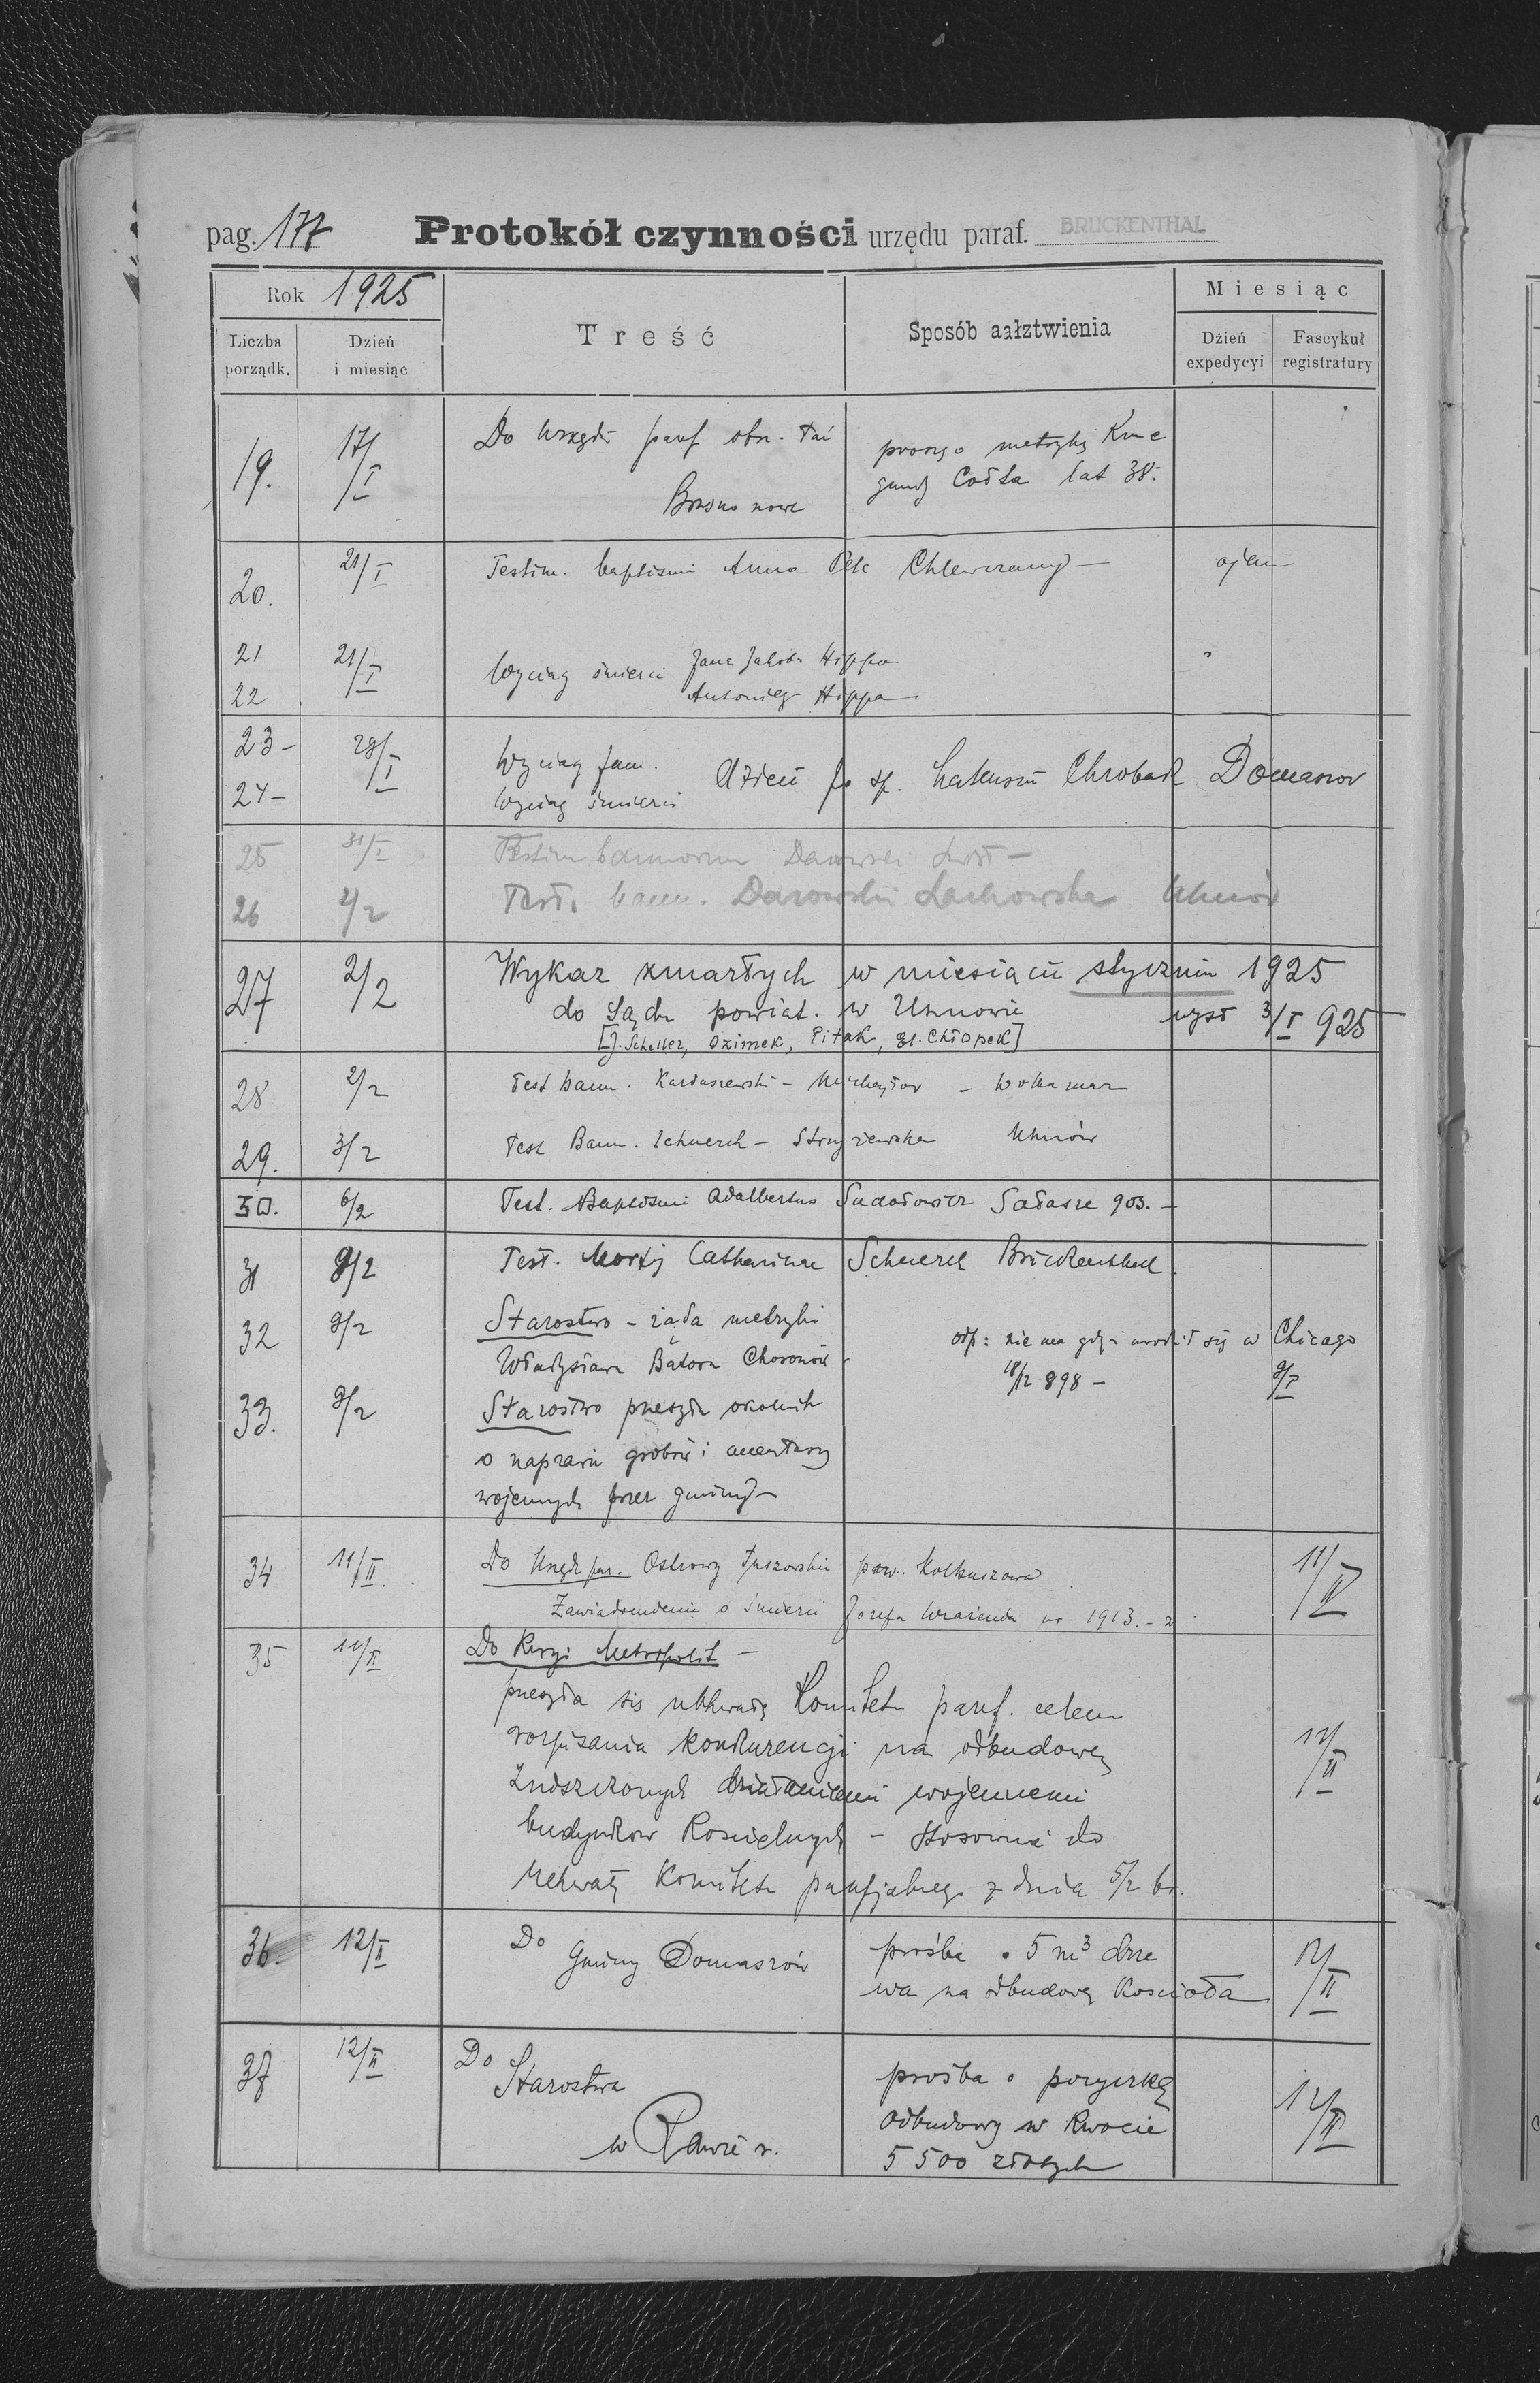 pag. 177 Protokół czynności urzędu paraf. BRUCKENTHAL
Rok 1925 Treść Sposób aałztwienia Miesiąc
Liczba porządk. Dzień i miesiąc Dzień expedycyi Fascykuł registratury
19. 17/I Do Urzędu paraf obr. łać proszę o metrykę Kune
Brusno nowe gundy Codła lat 38.
20. 21/I Testim. baptismi Anna Pelc Chlewczany — ojcu
21 21/I Wyciąg śmierci Jana Jakóba Hippa "
22 Antoniego Hippa
23 – 28/I Wyciąg fam.
24 – Wyciąg śmierci dzieci po śp. Mateuszu Chrobak Domaszow
25 31/I Testim bannorum Darowski
26 2/2 Test. bann. Darowski Lachowska Uhnów
27 2/2 Wykaz zmarłych w miesiącu styczniu 1925
do Sądu powiat. w Uhnowie wysł 3/I 925
[J. Scheller, Ozimek, Pitak, Chłopek]
28 2/2 Test bann. Kardaszewski – Michajłow –
29. 3/2 Test Bann. Schuerch – Stryżewska Uhnów
30. 6/2 Test. Baptismi Adalbertus Sałasze 903. –
31 9/2 Test. Mortis Catharinae Schuerch Brückenthal.
32 9/2 Starostwo – żąda metryki odp: nie ma gdyż urodził się w Chicago
Władysława Bątora Choronów – 18/12 898 – 9/I
33. 9/2 Starostwo przesyła okólnik
o naprawie grobów i cmentarzy
wojennych przez gminy –
34 11/II. Do Urzędu par. Ostrowy Tuszowskie pow. Kolbuszowa 11/II
Zawiadomienie o śmierci Józefa Wrażenda ur 1913. –
35 11/II Do Kuryi Metropolit –
przesyła się uchwałę Komitetu paraf. celem
rozpisania konkurencji na odbudowę 12/II
zniszczonych działaniami wojennemi
budynków kościelnych – stosownie do
uchwały Komitetu parafjalnego z dnia 5/2 br.
36. 12/II Do Gminy Domaszów prośba o 5 m³ drze 12/II
wa na odbudowę Kościoła
37 12/II Do Starostwa prośba o pożyczkę 12/II
w Rawie r. odbudowy w kwocie
5 500 złotych